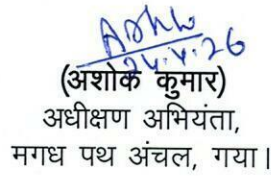 24.4.26
(अशोक कुमार)
अधीक्षण अभियंता,
मगध पथ अंचल, गया।